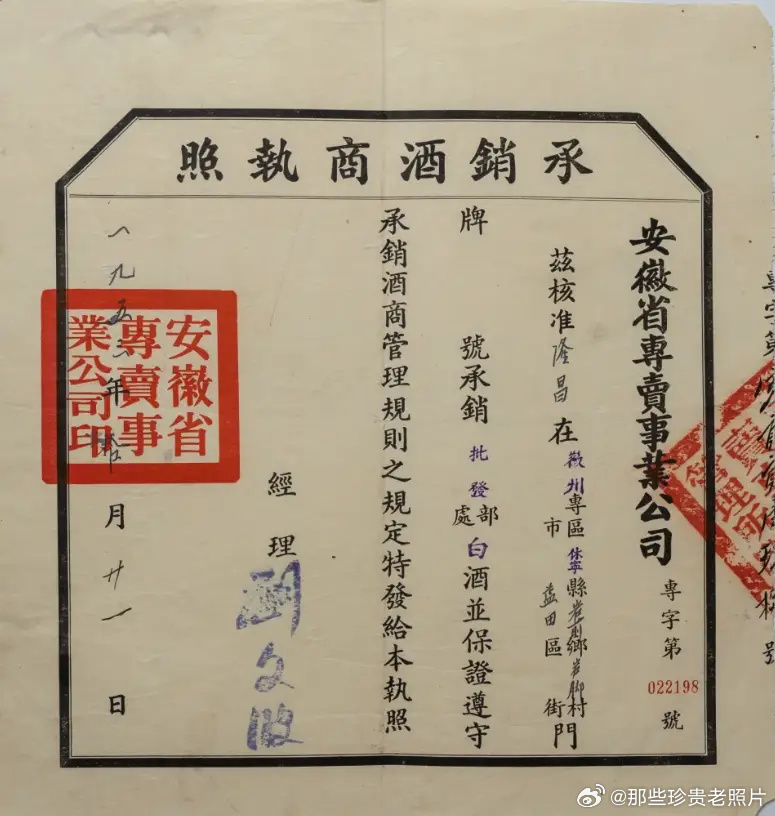 承銷酒商執照
安徽省專賣事業公司
專字第
022198
號
茲核准隆昌在徽州專區市休寧縣藍田區巖前鄉巖腳村街門
牌號承銷批發部處白酒並保證遵守
承銷酒商管理規則之規定特發給本執照
經理
劉文波
一九五三年拾月廿一日
安徽省
專賣事
業公司印
專字第
號
@那些珍贵老照片